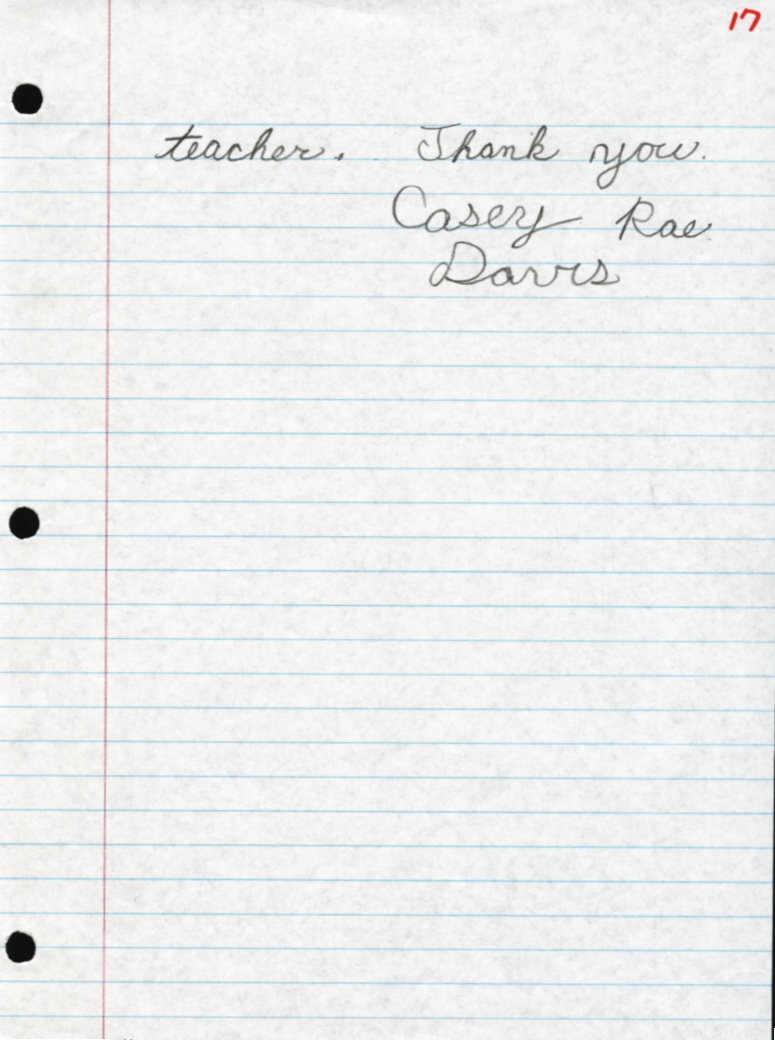 17
teacher. Thank you.
Casey Rae
Davis